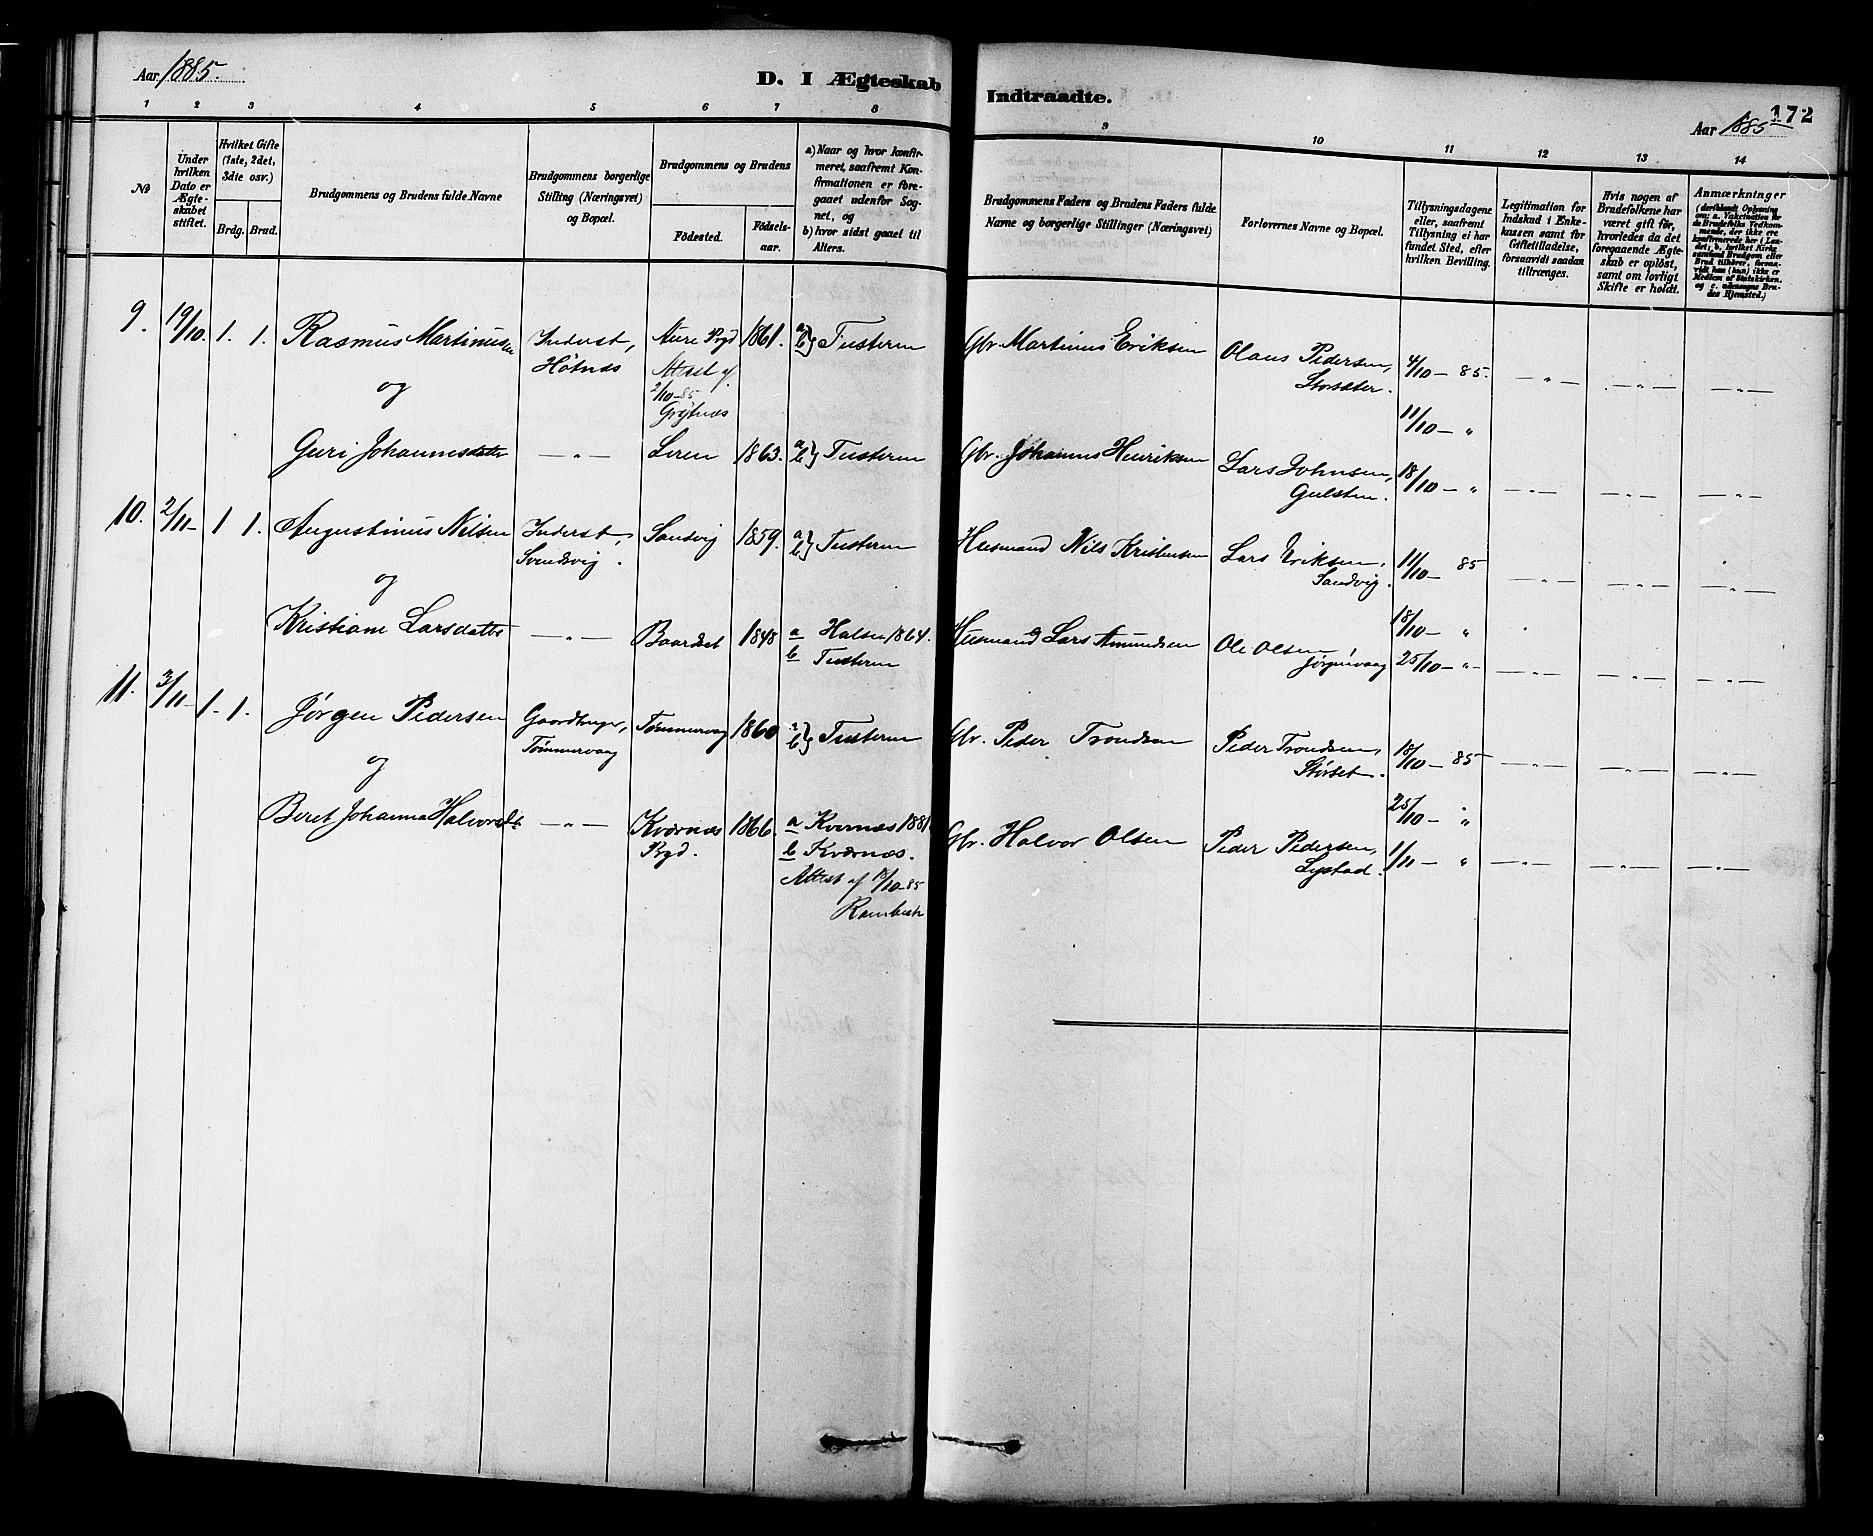 Aar 1885.
D. I Ægteskab
Indtraadte.
172
Aar 1885
1 2 3 4 5 6 7 8
9 10 11 12 13 14
No
Under hvilken Dato er Ægteskabet stiftet.
Hvilket Gifte (1ste, 2det, 3die osv.)
Brdg. Brud.
Brudgommens og Brudens fulde Navne
Brudgommens borgerlige Stilling (Næringsvei) og Bopæl.
Brudgommens og Brudens
Födested.
Födselsaar.
a) Naar og hvor konfirmeret, saafremt Konfirmationen er foregaaet udenfor Sognet, og
b) hvor sidst gaaet til Alters.
Brudgommens Faders og Brudens Faders fulde Navne og borgerlige Stillinger (Næringsvei)
Forlovernes Navne og Bopæl.
Tillysningsdagene eller, saafremt Tillysning ei har fundet Sted, efter hvilken Bevilling.
Legitimation for Indskud i Enkekassen samt for Giftetilladelse, forsaavidt saadan tiltrænges.
Hvis nogen af Brudefolkene har været gift før, hvorledes da det foregaaende Ægteskab er opløst, samt om lovligt Skifte er holdt.
Anmærkninger
(deriblandt Oplysning om: a. Vakcination for de Brudefolks Vedkommende, der ikke ere konfirmerede her i Landet; b. hvilket Kirkesamfund Brudgom eller Brud tilhører, forsaavidt han (hun) ikke er Medlem af Statskirken, og c. udensogns Brudes Hjemsted.)
9. 19/10. 1. 1. Rasmus Martinussen Inderst, Aure Prgd 1861. a b} Tusteren Gbr. Martinus Eriksen Olaus Pedersen, 4/10 - 85. — „ — — „ — — „ —
Høtnæs Attest af Storsæter.
og 2/10-85
Grytnæs 11/10 - „
Guri Johannesdatter — „ — Leren 1863. a b} Tusteren Gbr. Johannes Henriksen Lars Johnsen, 18/10 - „ — „ — — „ — — „ —
Gulsten.
10. 2/11 - 1 1. Augustinus Nilsen Inderst, Sandvig 1859. a b} Tusteren Husmand Nils Kristensen Lars Eriksen, 11/10 - 85 — „ — — „ — — „ —
Svendsvig. Sandvig.
og
Kristiane Larsdatter — „ — Baardset 1848 a Halsen 1864. Husmand Lars Amundsen Ole Olsen 18/10 - „
b Tusteren Jørgenvaag 25/10 - „ — „ — — „ — — „ —
11. 3/11 - 1. 1. Jørgen Pedersen Gaardbruger, Tømmervaag 1860 a b} Tusteren Gbr. Peder Trondsen Peder Trondsen, 18/10 - 85 — „ — — „ — — „ —
Tømmervaag Storset.
og
25/10 - „
Beret Johanna Halvorsdt. — „ — Kværnæs 1866. a Kvernæs 1881 Gbr. Halvor Olsen Peder Pedersen, 1/11 - „ — „ — — „ — — „ —
Prgd. b Kværnæs. Lystad.
Attest af 18/10-85